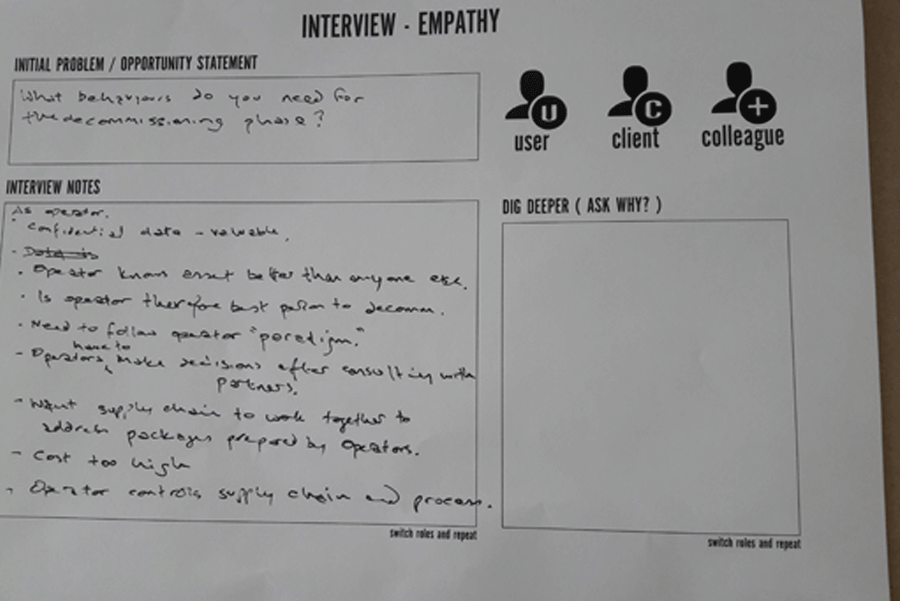 INTERVIEW - EMPATHY
INITIAL PROBLEM / OPPORTUNITY STATEMENT
What behaviours do you need for
the decommissioning phase?
U
user
C
client
+
colleague
INTERVIEW NOTES
As operator.
Confidential data - valuable.
- Data is
. Operator knows asset better than anyone else.
. Is operator therefore best person to decomm.
- Need to follow operator "paradigm."
have to
- Operators, make decisions after consulting with
partners.
- Want supply chain to work together to
address packages prepared by Operators.
- Cost too high
- Operator controls supply chain and process.
switch roles and repeat
DIG DEEPER ( ASK WHY? )
switch roles and repeat